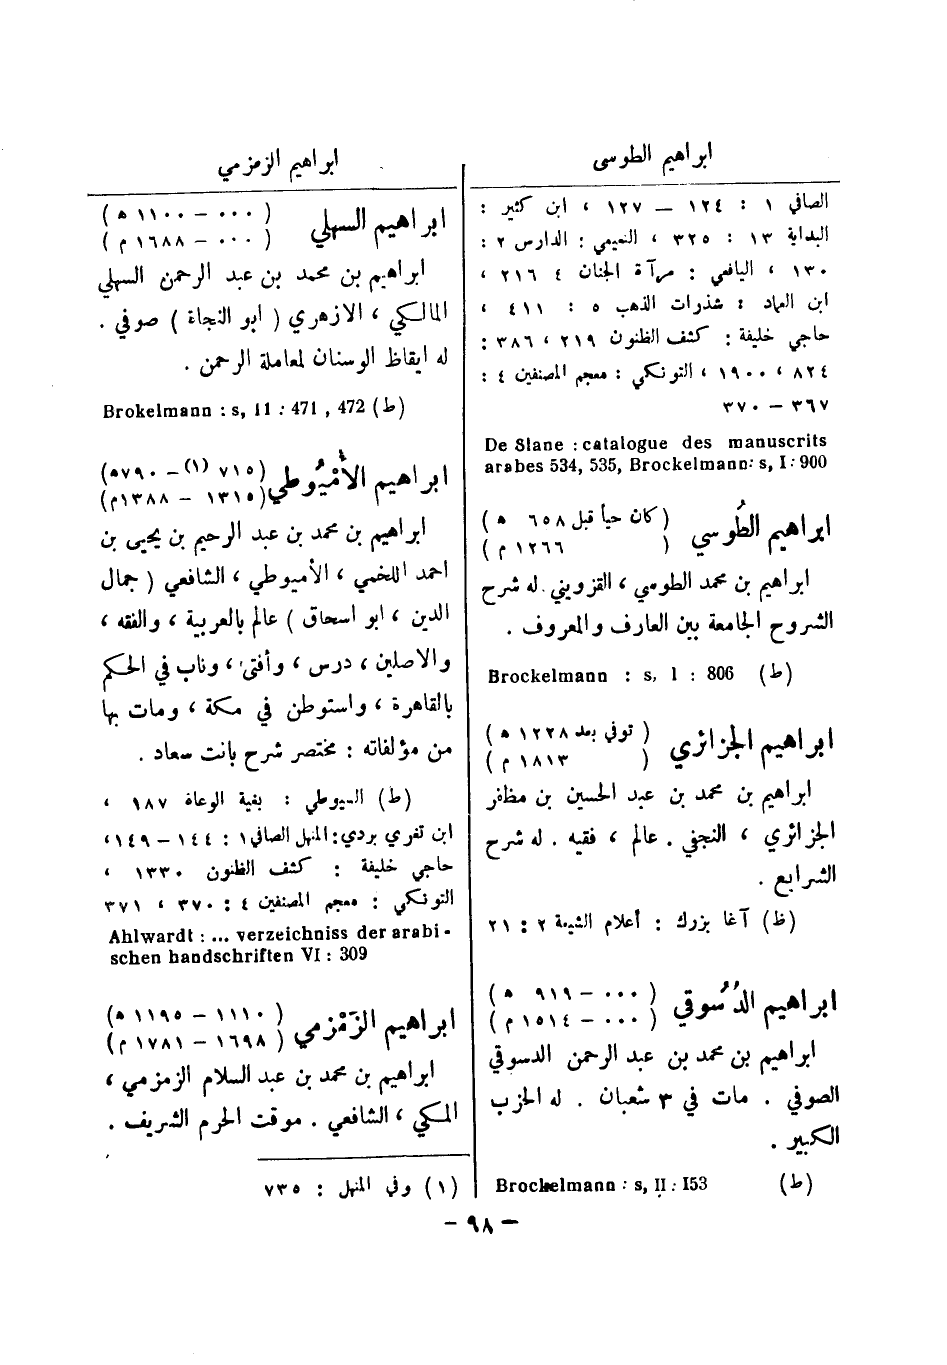 ابراهيم الطوسى
الصافي ١ : ١٢٤ — ١٢٧ ، ابن كثير :
البداية ١٣ : ٣٢٥ ، النعيمي : الدارس ٢ :
١٣٠ ، اليافعي : مرآة الجنان ٤ ٢١٦ ،
ابن العماد : شذرات الذهب ٥ : ٤١١ ،
حاجي خليفة : كشف الظنون ٢١٩ ، ٣٨٦ :
٨٢٤ ، ١٩٠٠ ، التونكي : معجم المصنفين ٤ :
٣٦٧ — ٣٧٠
De Slane : catalogue des manuscrits
arabes 534, 535, Brockelmann: s, I : 900
ابراهيم الطُوسي ( كان حياً قبل ٦٥٨ ه )
( ١٢٦٦ م )
ابراهيم بن محمد الطوسي ، القزويني . له شرح
الشروح الجامعة بين العارف والمعروف .
(ط) Brockelmann : s, I : 806
ابراهيم الجزائري ( توفي بعد ١٢٢٨ ه )
( ١٨١٣ م )
ابراهيم بن محمد بن عبد الحسين بن مظافر
الجزائري ، النجفي . عالم ، فقيه . له شرح
الشرايع .
(ظ) آغا بزرك : أعلام الشيعة ٢ : ٢١
ابراهيم الدُسُوقي ( ٠٠٠ — ٩١٩ ه )
( ٠٠٠ — ١٥١٤ م )
ابراهيم بن محمد بن عبد الرحمن الدسوقي
الصوفي . مات في ٣ شعبان . له الحزب
الكبير .
(ط) Brockelmann : s, II : I53
ابراهيم الزمزمي
ابراهيم السهلي ( ٠٠٠ — ١١٠٠ ه )
( ٠٠٠ — ١٦٨٨ م )
ابراهيم بن محمد بن عبد الرحمن السهلي
المالكي ، الازهري ( ابو النجاة ) صوفي .
له ايقاظ الوسنان لمعاملة الرحمن .
(ط) Brokelmann : s, 11 : 471 , 472
ابراهيم الأُمْيُوطي (٧١٥ (١) — ٧٩٠ه)
(١٣١٥ — ١٣٨٨م)
ابراهيم بن محمد بن عبد الرحيم بن يحيى بن
احمد اللخمي ، الأميوطي ، الشافعي ( جمال
الدين ، ابو اسحاق ) عالم بالعربية ، والفقه ،
والاصلين ، درس ، وأفتى ، وناب في الحكم
بالقاهرة ، واستوطن في مكة ، ومات بها
من مؤلفاته : مختصر شرح بانت سعاد .
(ط) السيوطي : بغية الوعاة ١٨٧ ،
ابن تغري بردي : المنهل الصافي ١ : ١٤٤ — ١٤٩ ،
حاجي خليفة : كشف الظنون ١٣٣٠ ،
التونكي : معجم المصنفين ٤ : ٣٧٠ ، ٣٧١
Ahlwardt : ... verzeichniss der arabi-
schen handschriften VI : 309
ابراهيم الزَمْزمي ( ١١١٠ — ١١٩٥ ه )
( ١٦٩٨ — ١٧٨١ م )
ابراهيم بن محمد بن عبد السلام الزمزمي ،
المكي ، الشافعي . موقت الحرم الشريف .
(١) وفي المنهل : ٧٣٥
— ٩٨ —